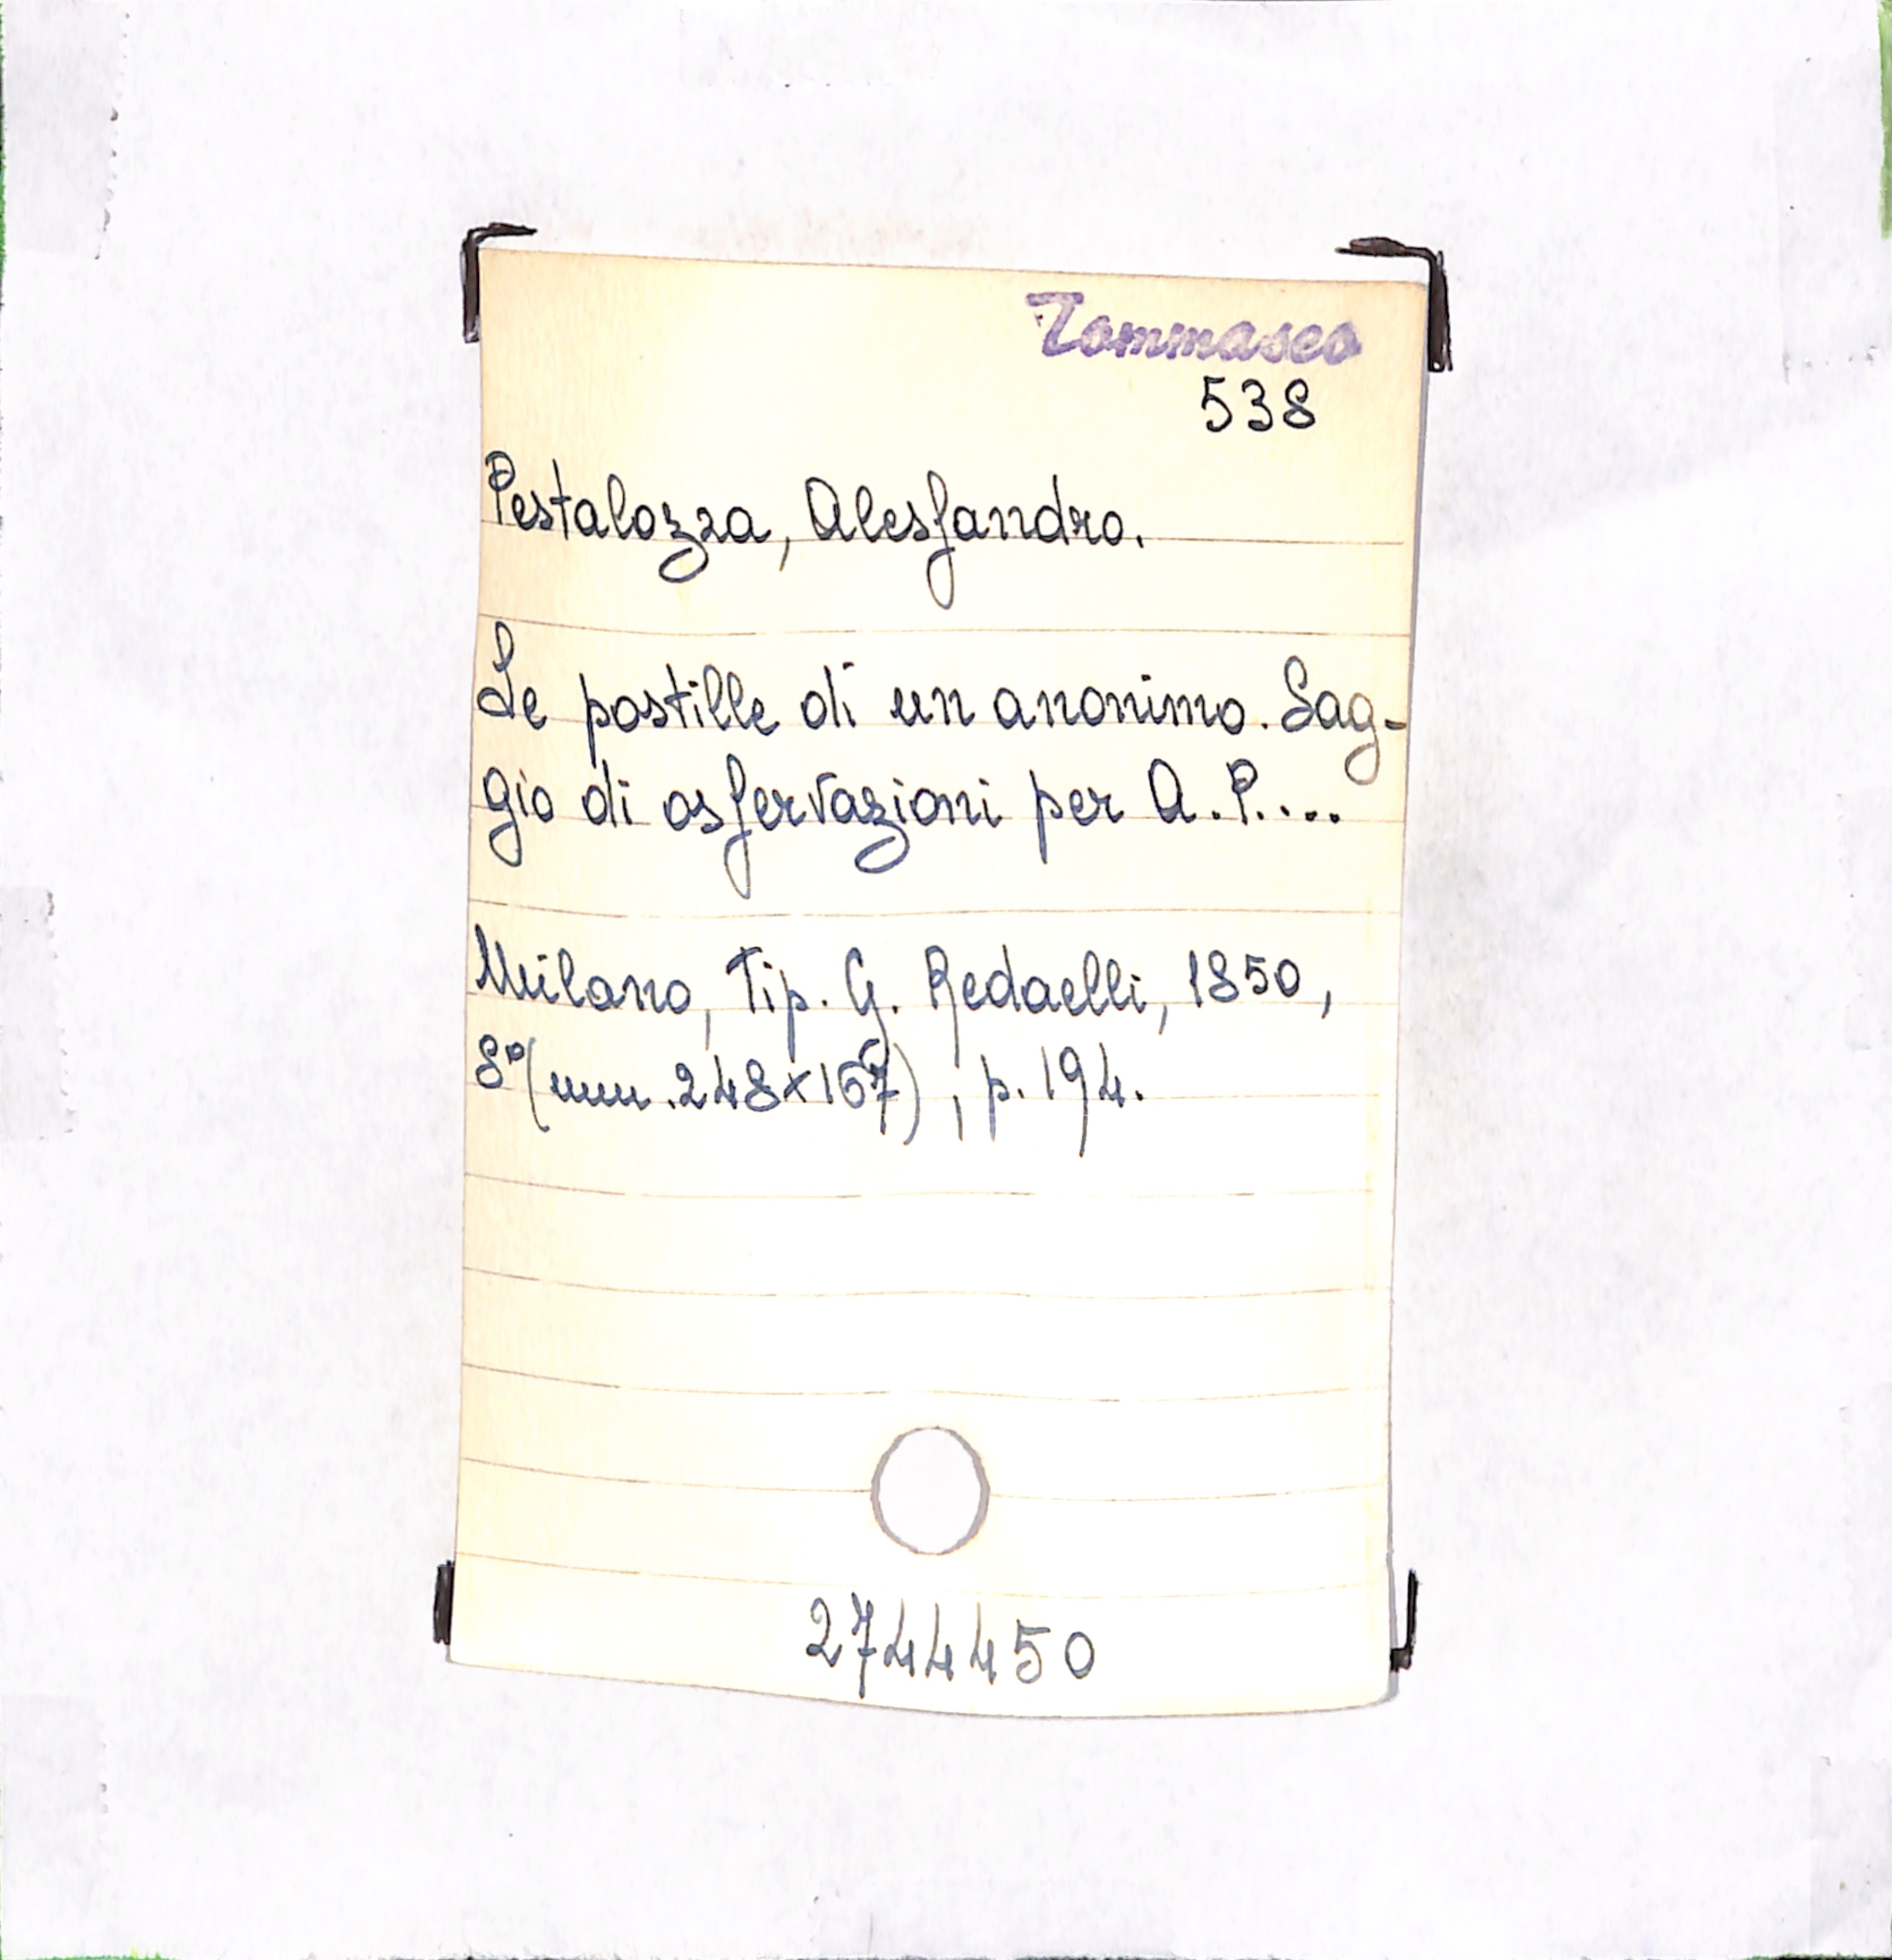 Tommaseo
538
Pestalozza, Alessandro.
Le postille di un anonimo. Sag-
gio di osservazioni per A.P....
Milano, Tip. G. Redaelli, 1850,
8°(mm.248x167), p.194.
2744450